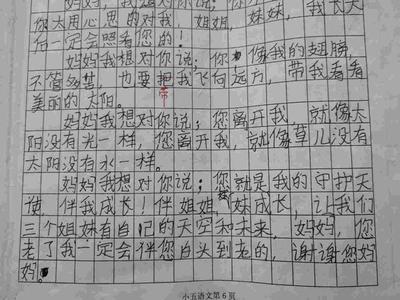 妈妈,我想对你说:你
你太用心思的对我,姐姐,妹妹,我长大
后一定会照看您的!
妈妈我想对你说;你像我的翅膀,
不管多苦,也要把我飞向远方,带我看看
带
美丽的太阳。
妈妈我想对你说:您离开我,就像太
阳没有光一样,您离开我,就像草儿没有
太阳没有水一样。
妈妈我想对你说;您就是我的守护天
使,伴我成长!伴姐姐,妹成长,让我们
三个姐妹有自己的天空和未来,妈妈,您
老了我一定会伴您白头到老的,谢谢您妈
妈。
小五语文第6页